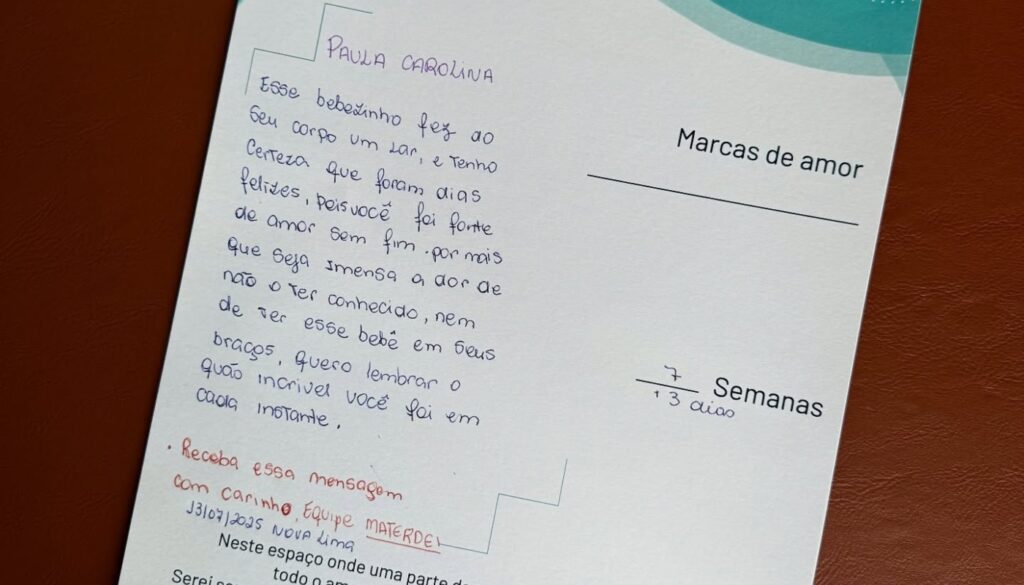 PAULA CAROLINA
Esse bebezinho fez ao
seu corpo um lar, e tenho
certeza que foram dias
felizes, pois você foi fonte
de amor sem fim. por mais
que seja imensa a dor de
não o ter conhecido, nem
de ter esse bebê em seus
braços, quero lembrar o
quão incrivel você foi em
cada instante.
. Receba essa mensagem
com carinho, Equipe MATERDEI
13/07/2025 NOVA Lima
Neste espaço onde uma parte d
todo o am
Serei se
Marcas de amor
7 Semanas
+3 dias